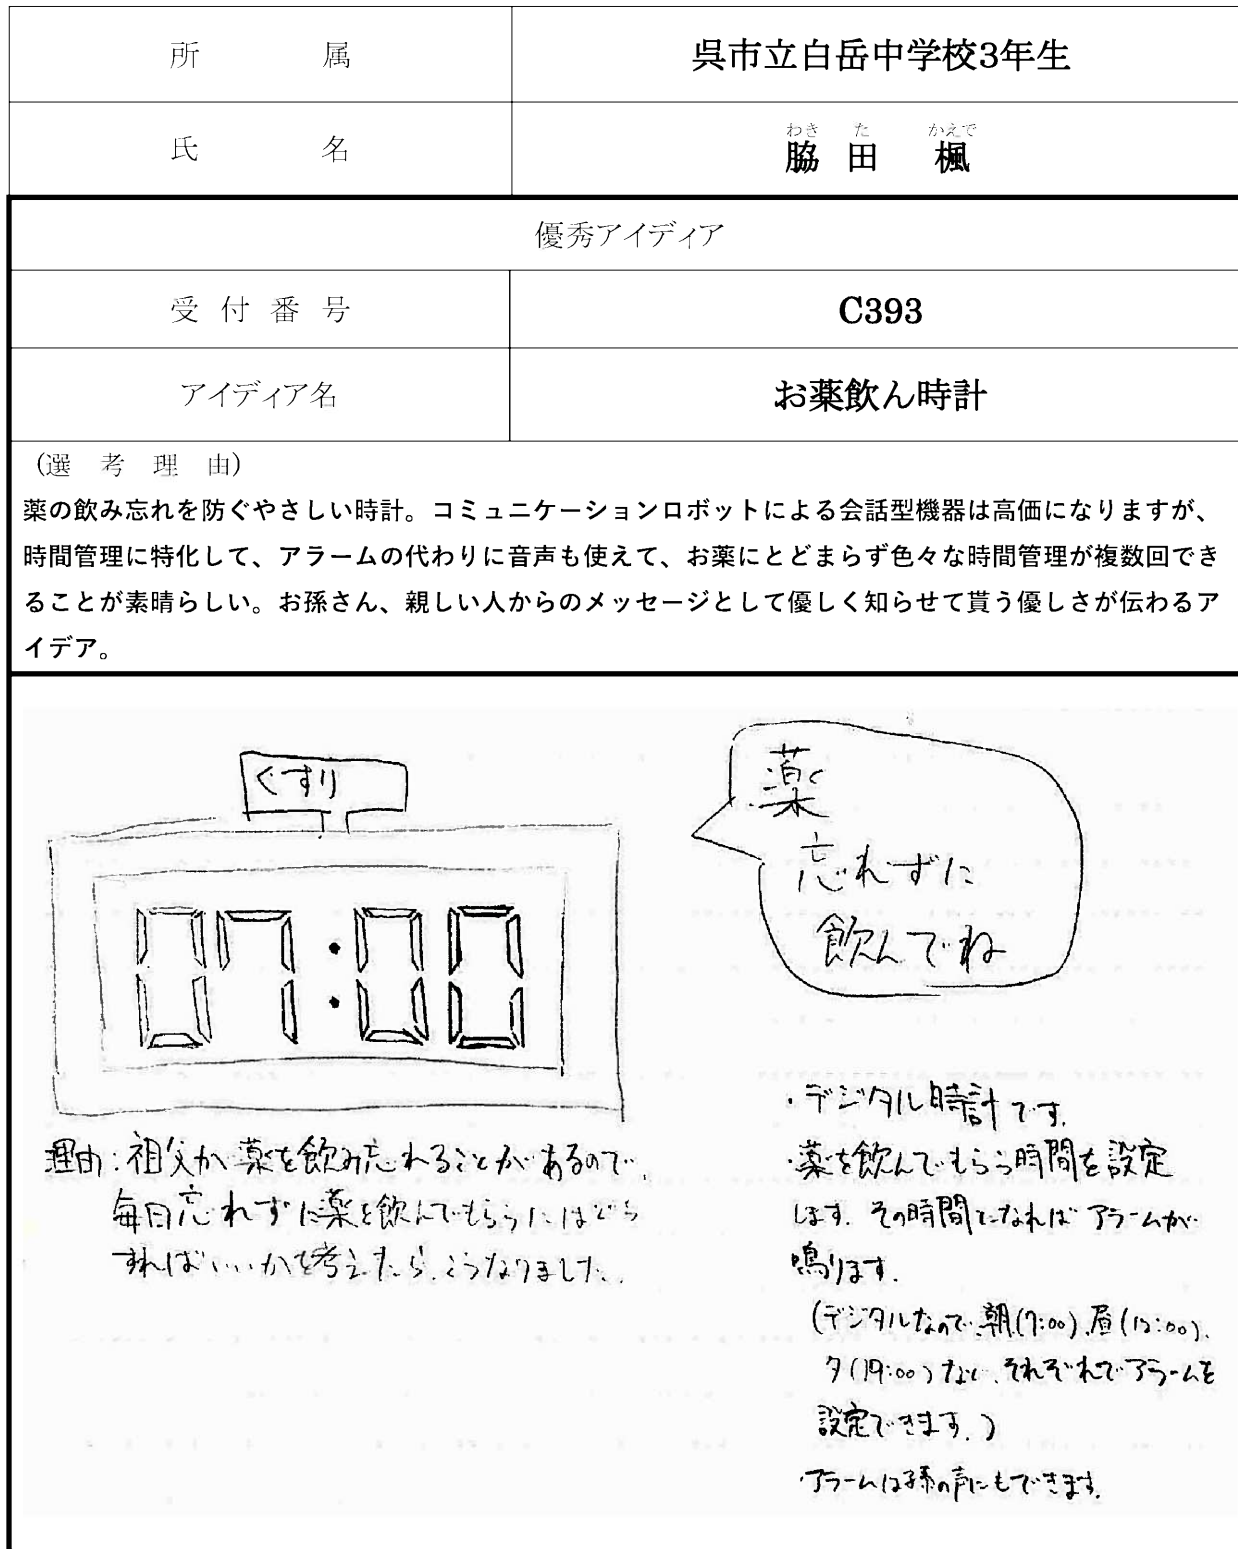 所属
呉市立白岳中学校3年生
氏名
わき た かえで
脇田 楓
優秀アイディア
受付番号
C393
アイディア名
お薬飲ん時計
(選考理由)
薬の飲み忘れを防ぐやさしい時計。コミュニケーションロボットによる会話型機器は高価になりますが、
時間管理に特化して、アラームの代わりに音声も使えて、お薬にとどまらず色々な時間管理が複数回でき
ることが素晴らしい。お孫さん、親しい人からのメッセージとして優しく知らせて貰う優しさが伝わるア
イデア。
くすり
07:00
薬
忘れずに
飲んでね
理由:祖父が薬を飲み忘れることがあるので、
毎日忘れずに薬を飲んでもらうにはどう
すればいいかを考えたら、こうなりました。
・デジタル時計です。
・薬を飲んでもらう時間を設定
します。その時間になればアラームが
鳴ります。
(デジタルなので、朝(7:00)、昼(12:00)、
夕(19:00)など、それぞれでアラームを
設定できます。)
・アラームは孫の声にもできます。